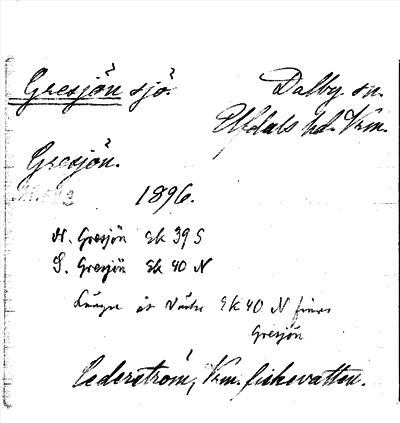 Gresjön sjö.
Dalby sn.
Elfdals hd. Vrm.
Gresjön.
1896.
N. Gresjön Ek 39 S
S. Gresjön Ek 40 N
Längre åt Väster Ek 40 N finns
Gresjön
Cederström, Vrm. fiskevatten.